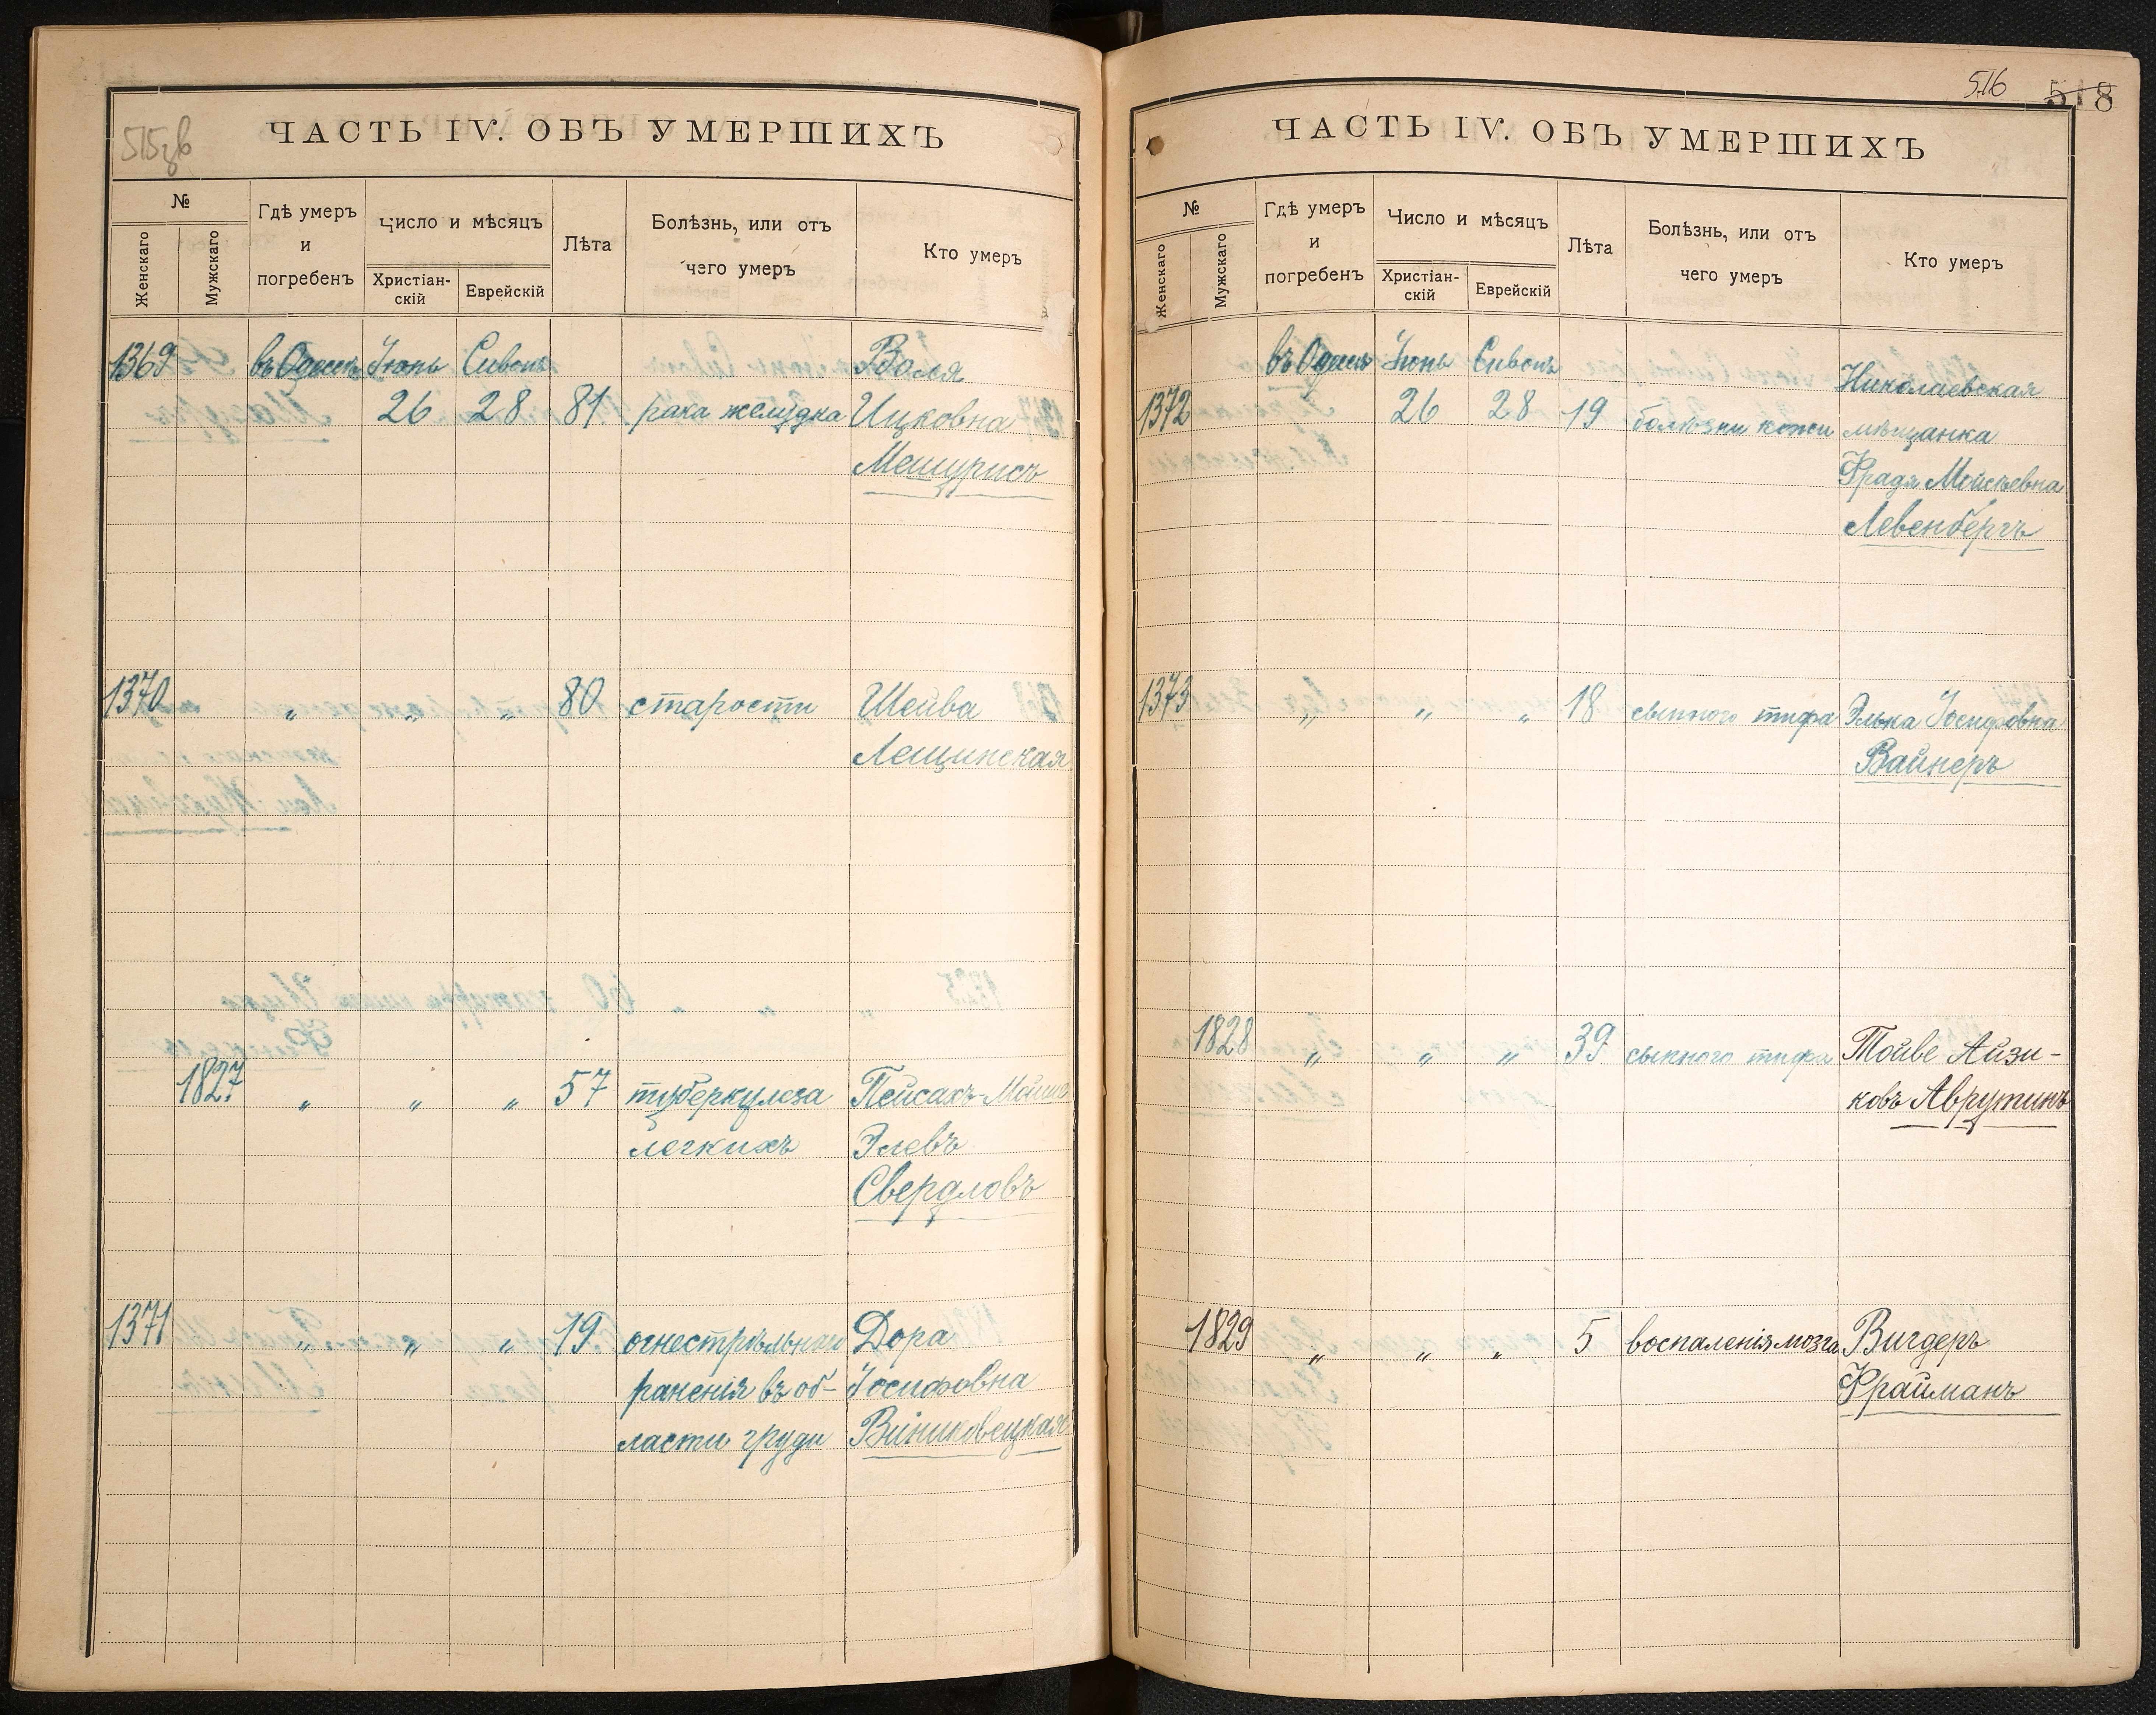 515 зв
ЧАСТЬ IV. ОБЪ УМЕРШИХЪ
№
Женскаго
Мужскаго
Гдѣ умеръ
и
погребенъ
Число и мѣсяцъ
Христіан-
скій
Еврейскій
Лѣта
Болѣзнь, или отъ
чего умеръ
Кто умеръ
1369 въ Одессѣ Іюнь Сивонъ Воля
26 28 81 рака желудка Ицковна
Мешурисъ
1370 „ „ „ 80 старости Шейва
Лещинская
1827 „ „ „ 57 туберкулеза Пейсахъ-Мойше
легкихъ Элевъ
Свердловъ
1371 „ „ „ 19 огнестрѣльнаго Дора
раненія въ об- Іосифовна
ласти груди Виниковецкая
516 518
ЧАСТЬ IV. ОБЪ УМЕРШИХЪ
№
Женскаго
Мужскаго
Гдѣ умеръ
и
погребенъ
Число и мѣсяцъ
Христіан-
скій
Еврейскій
Лѣта
Болѣзнь, или отъ
чего умеръ
Кто умеръ
въ Одессѣ Іюнь Сивонъ Николаевская
1372 26 28 19 болѣзни мѣщанка
Фрадя Мойсеевна
Левенбергъ
1373 „ „ „ 18 сыпного тифа Элька Іосифовна
Вайнеръ
1828 „ „ „ 39 сыпного тифа Тойве Айзи-
ковъ Аврутинъ
1829 „ „ „ 5 воспаленія мозга Вигдеръ
Фрайманъ